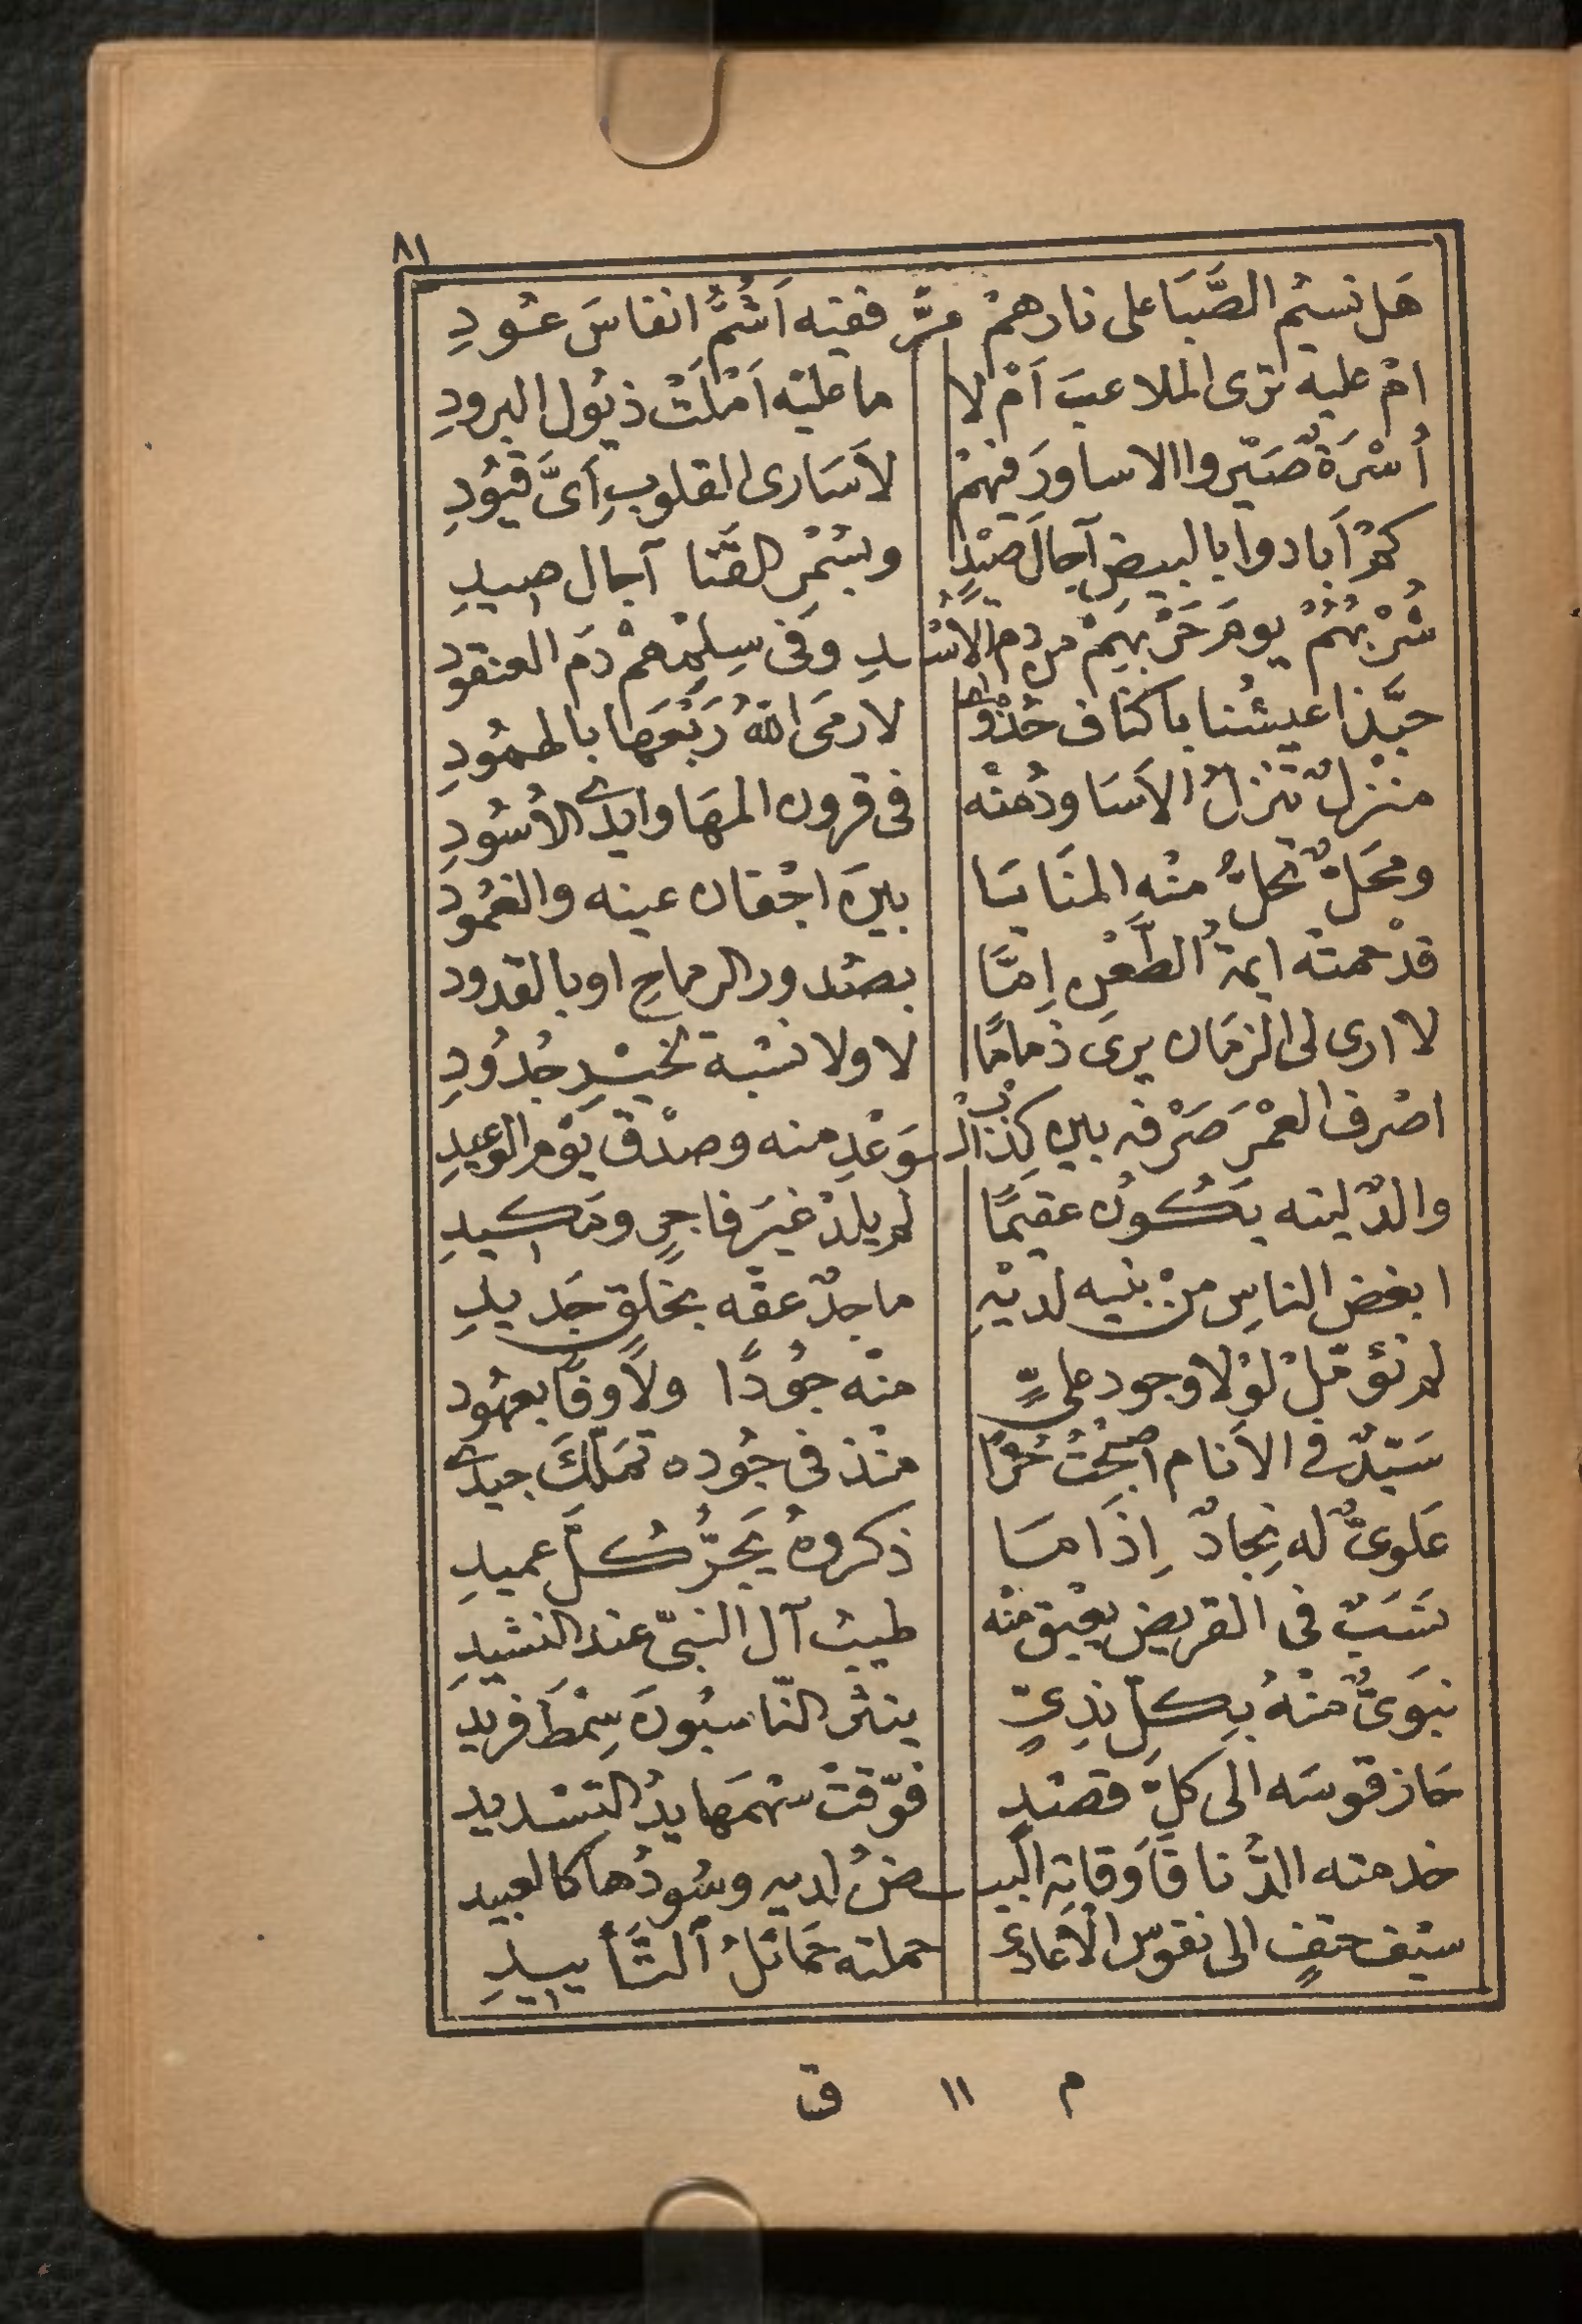 ٨١
هَل نسيْم الصَّبَا على نارهمْ مرَّ ففيه اَشُمُّ انفاسَ عُودِ
امْ عليه ترى الملاعبَ اَمْ لا ما عليْه اَمْلَتْ ذيُول البرودِ
اُسْرَةٌ صَيّروا الاساورَ فيهمْ لاَسَارى القلوبِ اَىَّ قيُودِ
كمْ اَبادوا بالبيضِ آجالَ صيْدٍ وبسُمْرِ القَنا آجال صيدِ
شُرْبُهُمْ يومَ حَرْبهِمْ من دم الاُسْـدِ وفى سِلْمهمْ دَم العنقود
حبَّذا عيشُنا باكناف حُذْوٰى لا رمَى اللهُ رَبْعَها بالهمُودِ
منْزلٌ تنزلُ الاَسَاودُ منْه فى قرون المهَا وايدى الاُسُودِ
ومحَلٌّ تحلُّ منْه المنَايَا بينَ اجْفان عينه والغمُودِ
قدْ حمتْه ايمةُ الطَّعْن اِمَّا بصُدورِ الرماحِ او بالقدود
لا ارى لى الزمَان يرىَ ذمامًا لا ولا نسْبة لخيْرِ جُدُودِ
اصْرف العمْرَ صَرْفه بين كِذْب الـوَعْدِ منه وصدْق يَوْم الوعيدِ
والدٌ ليته يَكُونُ عقيمًا لم يلدْ غيَر فاجرٍ ومَكيدِ
ابغض الناسِ منْ بنيه لديْهِ ماجدٌ عقّه بخلقٍ جَديدِ
لم نؤمّلْ لوْلا وجود علىٍّ منْه جوُدًا ولا وفًا بعهُود
سَيّدٌ فى الاَنام اصْبحْتُ حُرًّا منْذ فى جُوده تمَلّكَ جيدى
عَلوىٌّ له نِجادٌ اِذَا مَا ذكروهُ يَجرُّ كُلَّ عميدِ
نَسَبٌ فى القريض يعْبق منْه طيبُ آل النبىّ عند النشيدِ
نبَوىٌّ منْهُ بِكلِّ نِدِىّ ينثر النّاسبُونَ سِمْطَ فريدِ
حَاز قوسَه الى كلّ قصْدٍ فوّقتْ سهْمَها يدُ التسْديد
خدمته الدُّنا فَاَوقاتِه البيـضُ لديهِ وسُودُها كالعبيد
سيْف حتفٍ الى نفوس الاَعادى حملته حَمائلُ ٱلتَّأييدِ
م ١١ ق